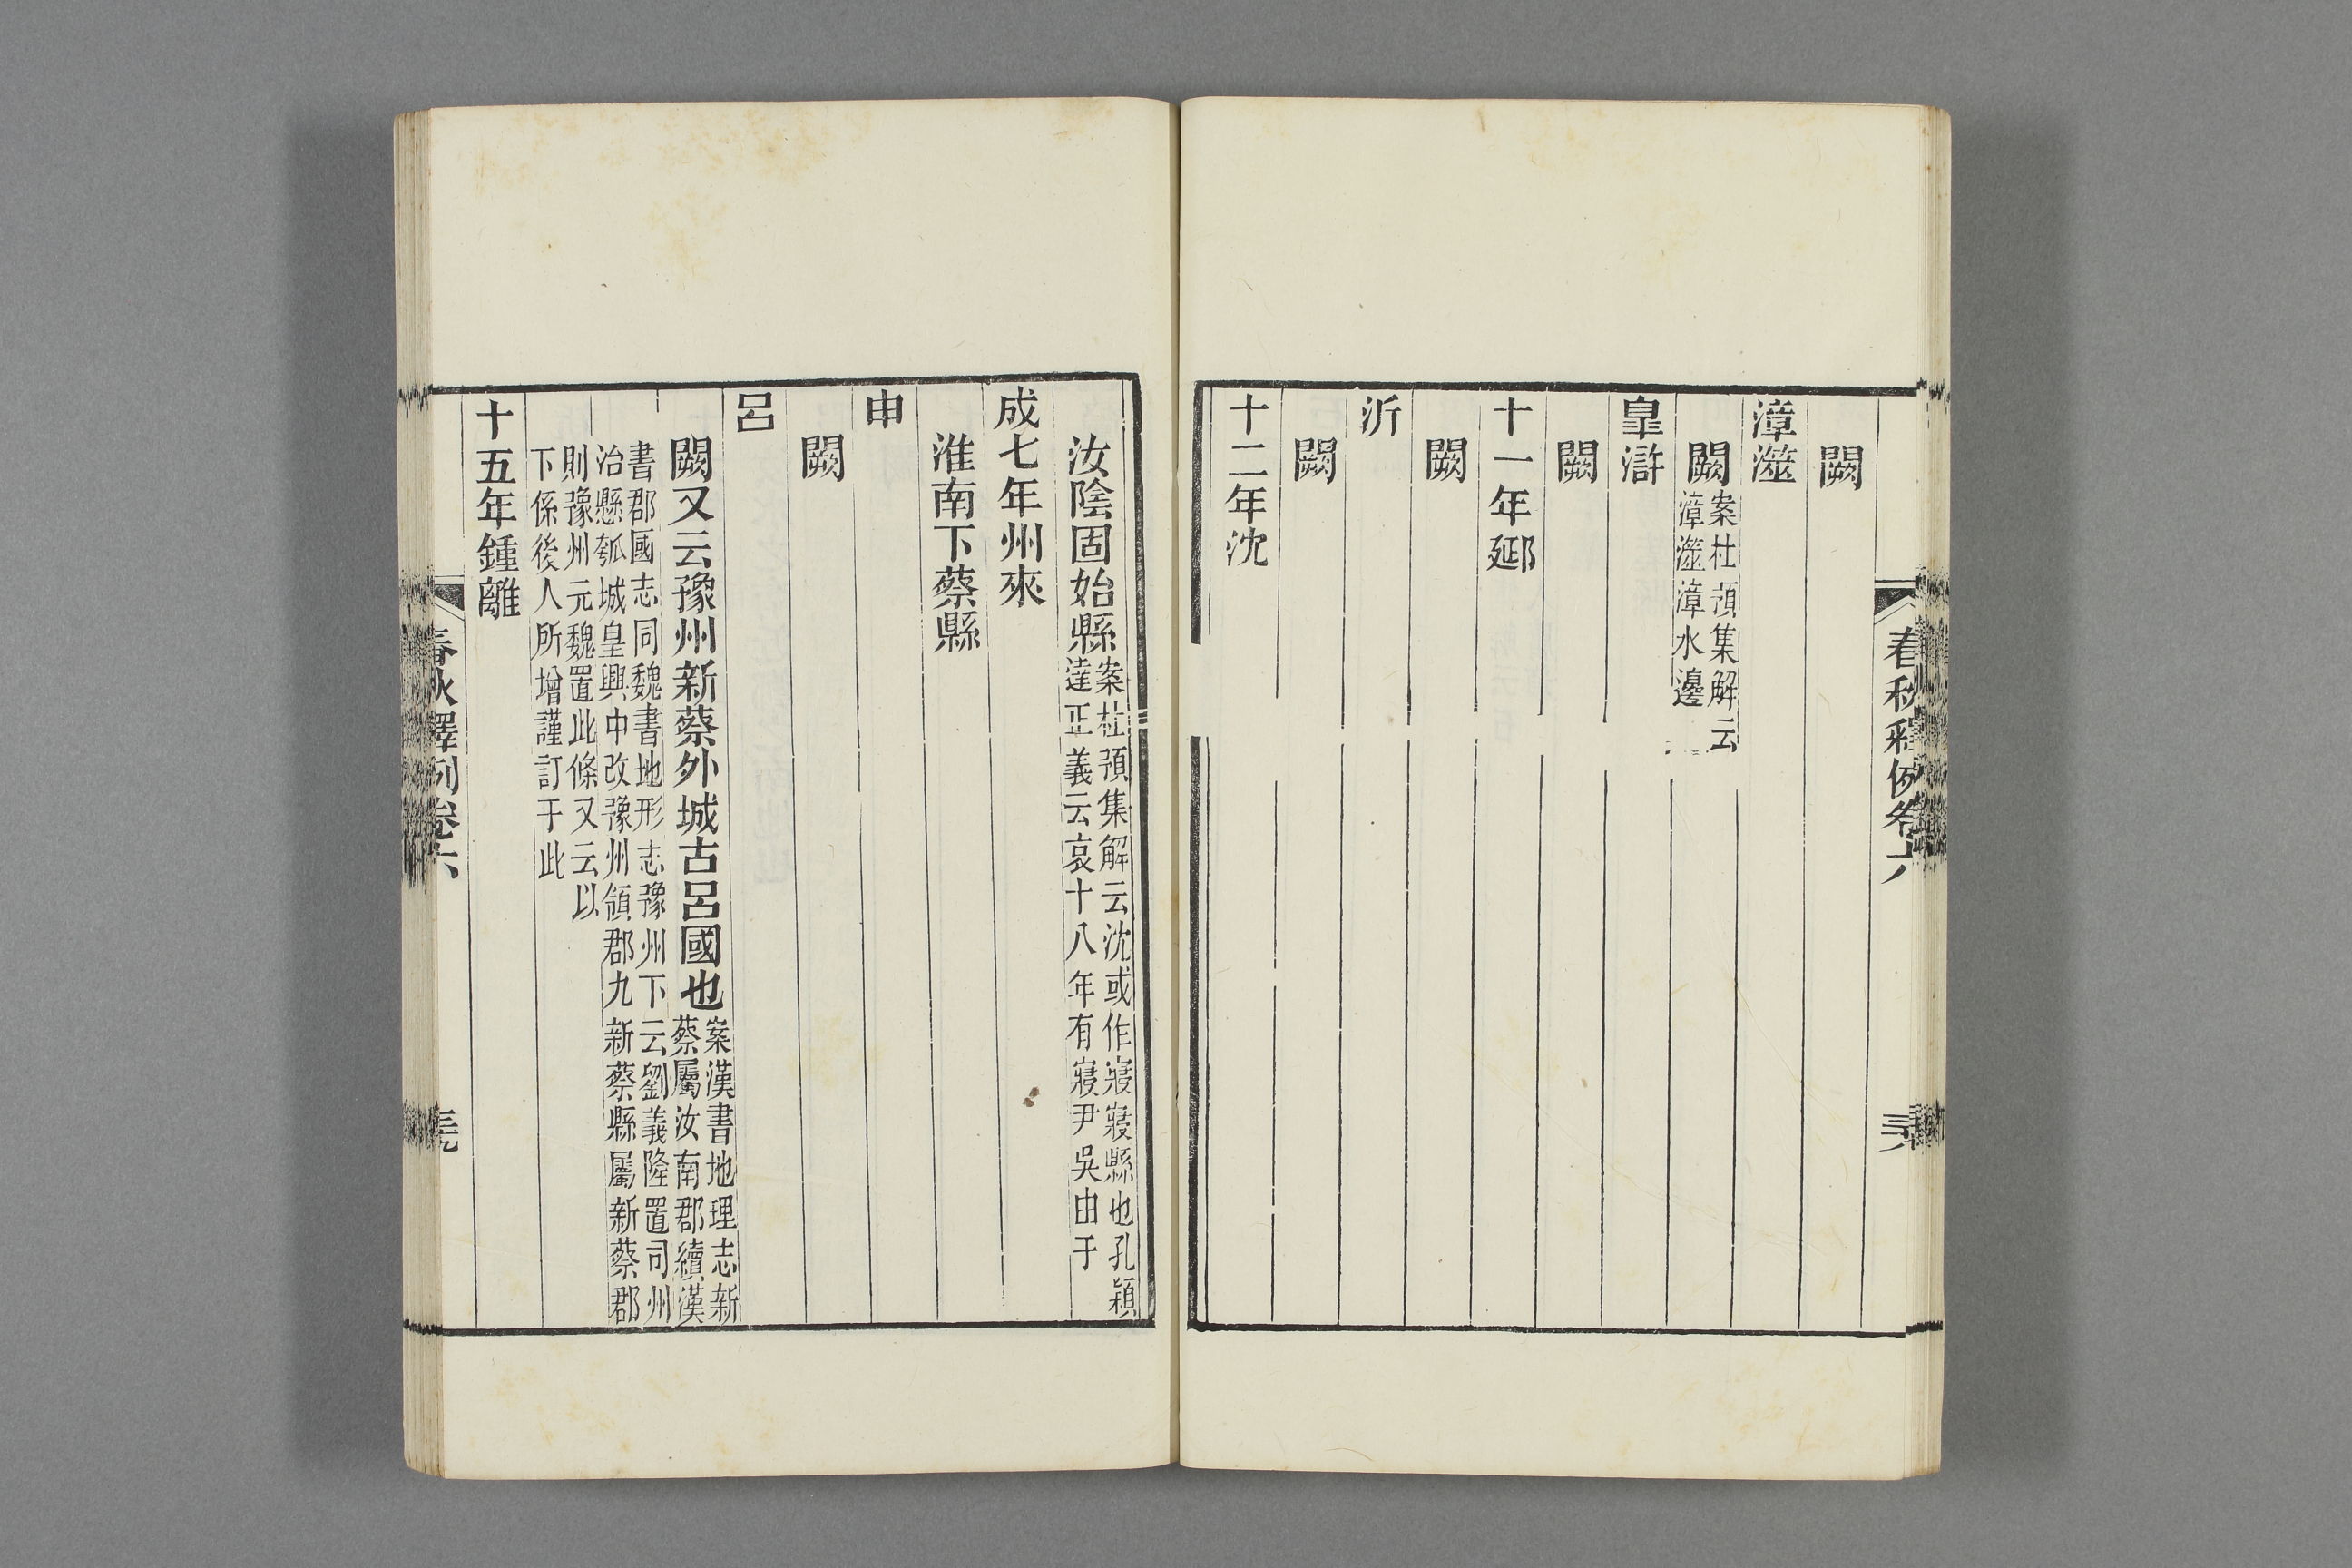 闕
漳澨
闕案杜預集解云
漳澨漳水邊
臯滸
闕
十一年郔
闕
沂
闕
十二年沈
春秋釋例卷六
汝陰固始縣案杜預集解云沈或作寢寢縣也孔穎
達正義云哀十八年有寢尹吳由于
成七年州來
淮南下蔡縣
申
闕
呂
闕又云豫州新蔡外城古呂國也案漢書地理志新
蔡屬汝南郡續漢
書郡國志同魏書地形志豫州下云劉義隆置司州
治懸瓠城皇興中改豫州領郡九新蔡縣屬新蔡郡
則豫州元魏置此條又云以
下係後人所增謹訂于此
十五年鍾離
春秋釋例卷六